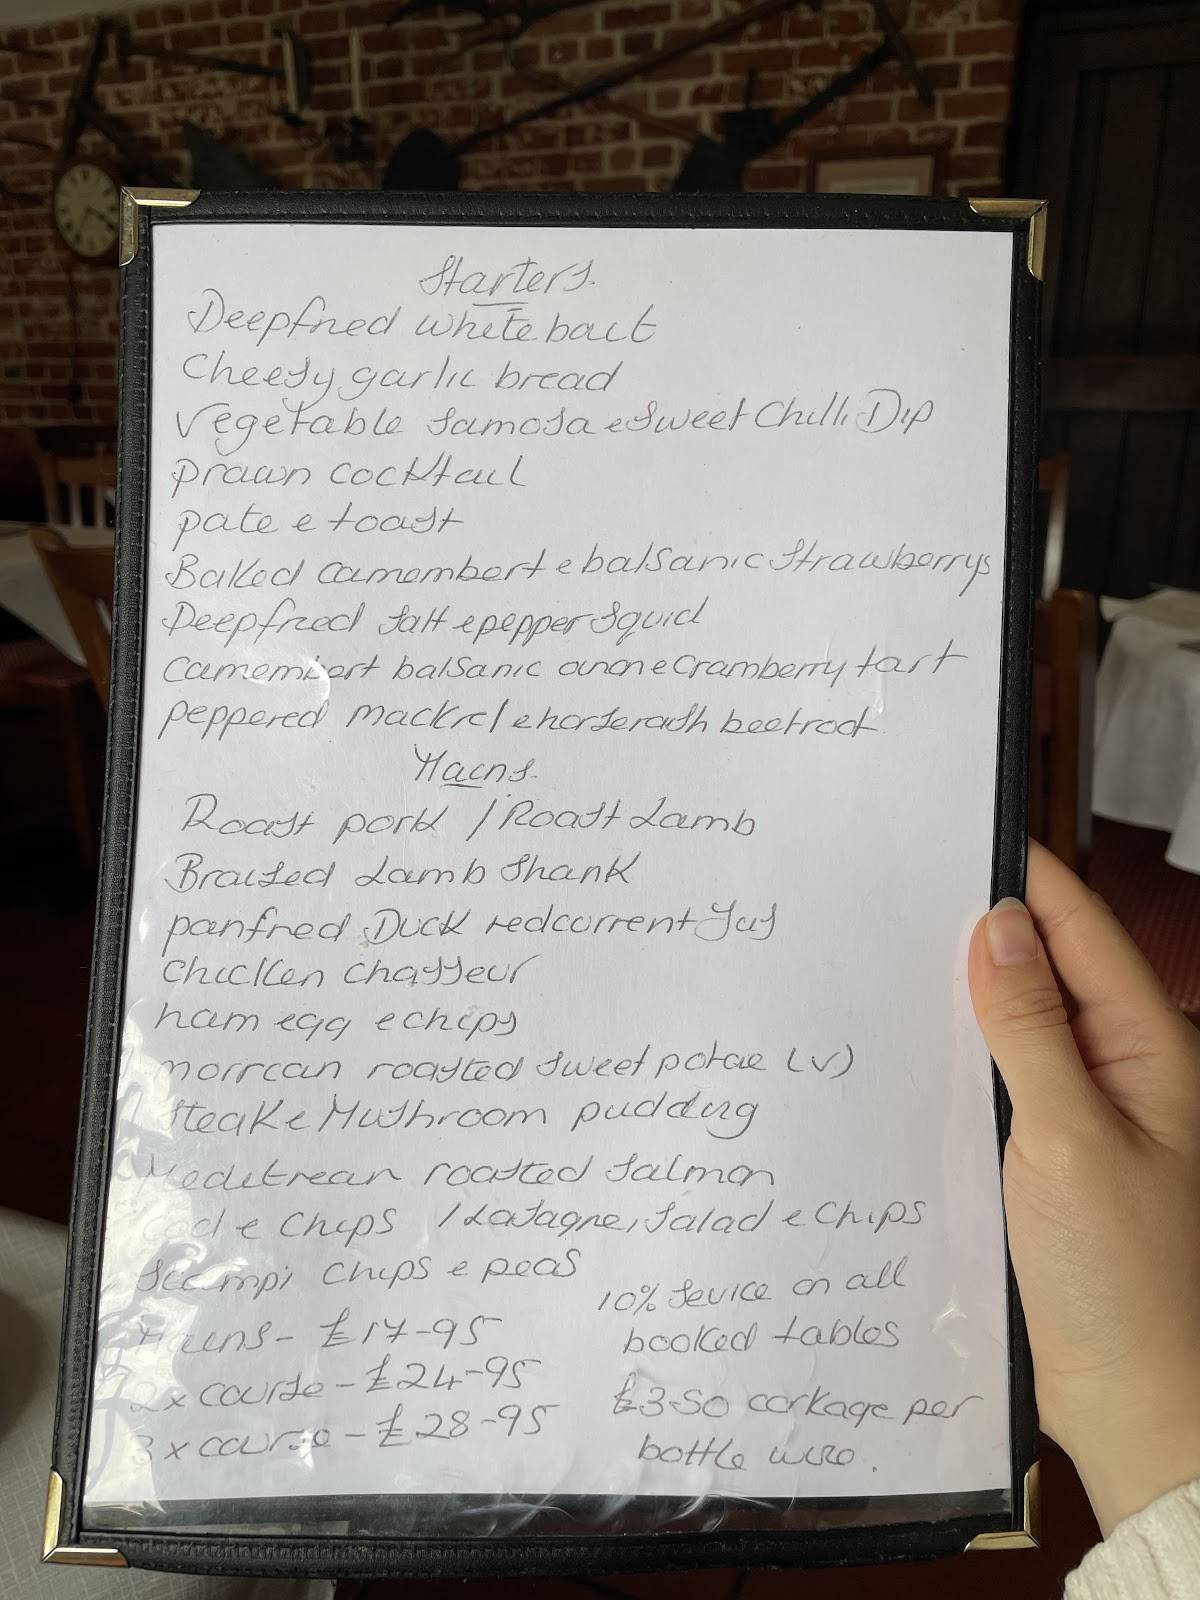 Starters.
Deepfried whitebait
Cheesy garlic bread
Vegetable Samosa e Sweet Chilli Dip
prawn cocktail
pate e toast
Baked camembert e balsanic Strawberrys
Deepfried Salt e pepper Squid
camembert balsanic onon e Cramberry tart
peppered mackrel e horserash beetroot
Mains.
Roast pork / Roast Lamb
Braised Lamb Shank
panfried Duck redcurrent Jus
Chicken chasseur
ham egg e chips
morrcan roasted Sweet potae (v)
Steak e Mushroom pudding
Meditrean roasted Salmon
cod e Chips / Lasagne, Salad e Chips
Scampi Chips e peas
10% Sevice on all
booked tables
Mains - £17-95
2 x course - £24-95
3 x course - £28-95
£3-50 corkage per
bottle wine.